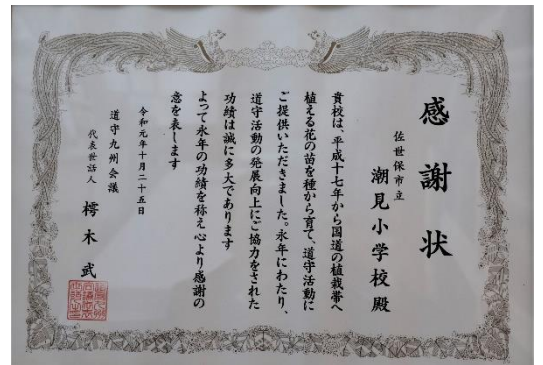 感謝状
佐世保市立
潮見小学校 殿
貴校は、平成十七年から国道の植栽帯へ
植える花の苗を種から育て、道守活動に
ご提供いただきました。永年にわたり、
道守活動の発展向上にご協力をされた
功績は誠に多大であります
よって永年の功績を称え心より感謝の
意を表します
令和元年十月二十五日
道守九州会議
代表世話人 樗木 武